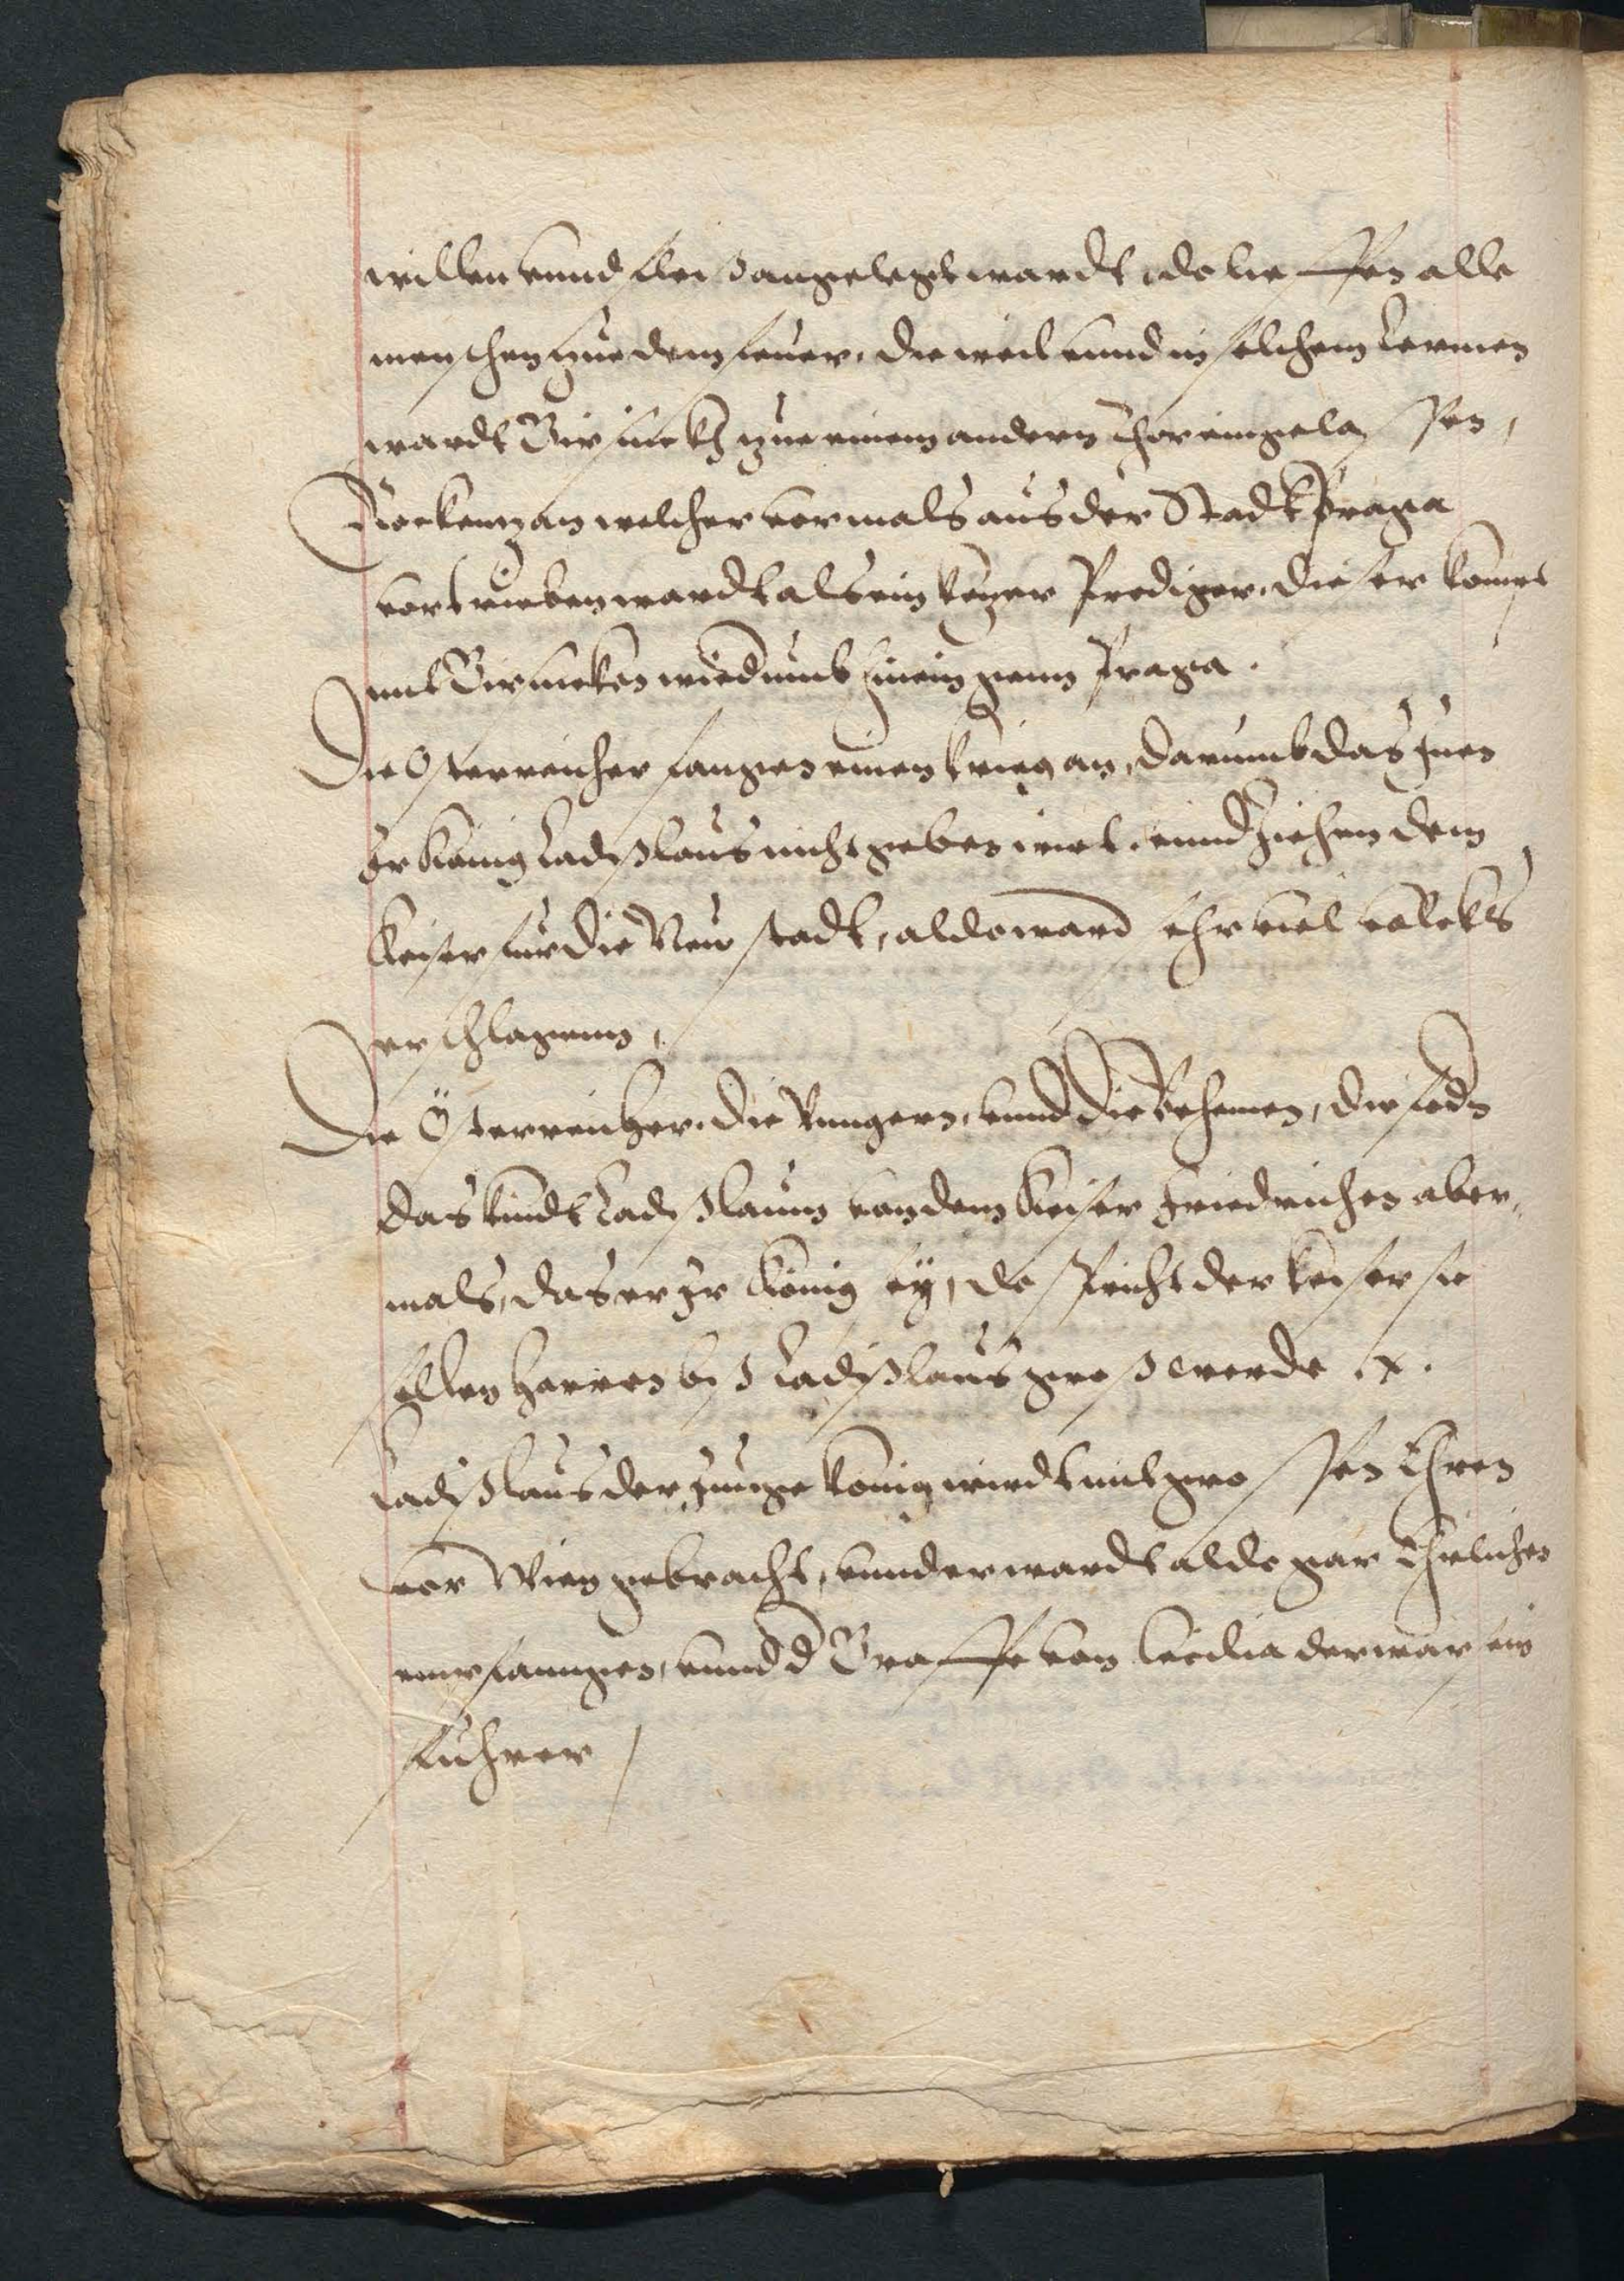 willen vnnd fleis angelegt wardt, do lieffen alle
menschen zue dem feuer, die weil vnnd in solchem Lermen
wardt Girsick zue einem andern Thor eingelassen,
Rockenzan welcher vormals aus der Stadt Praga
vortrieben wardt als ein ketzer Prediger, dieser kompt
mit Girsicken wiedumb hinein genn Praga.
Die Osterreicher fangen einen krieg an, darumb das Inen
Ir König Ladislaus nicht geben wirt, vnnd ziehen dem
Keiser fur die Neustadt, aldo ward sehr viel volcks
erschlagenn,
Die Österreicher, die Vungern, vnnd die Behemen, die fodn
das kindt Ladislaum von dem Keiser Friedrichen aber,
mals, das er Ir König sey, do spricht der keiser sie
sollen harren bis Ladislaus gros werde etc.
Ladislaus der Junge könig wirdt mit grossen Ehren
vor Wien gebracht, vnnd er wardt aldo gar Ehrlichen
empfanngen, vnnd d Graffe von Cecilia der war sein
fuhrer /